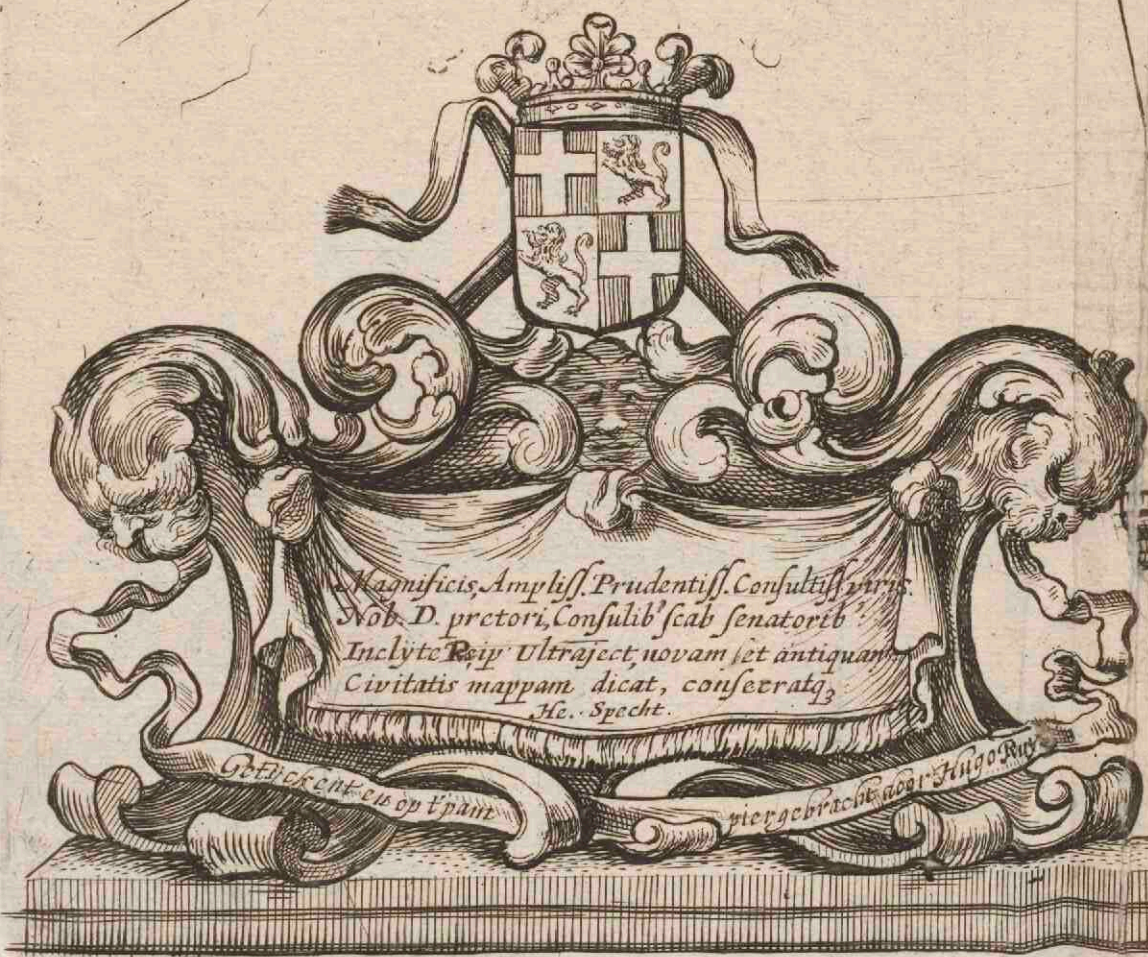 Magnificis, Ampliſſ. Prudentiſſ. Conſultiſſ viris.
Nob. D. pretori, Conſulib⁹ ſcab ſenatorib⁹
Inclÿte Reip Ultraject, novam et antiquam
Civitatis mappam dicat, conſecratqꝫ
He. Specht.
Geteÿckent en op t'pam
pier gebracht door Hugo Ruy